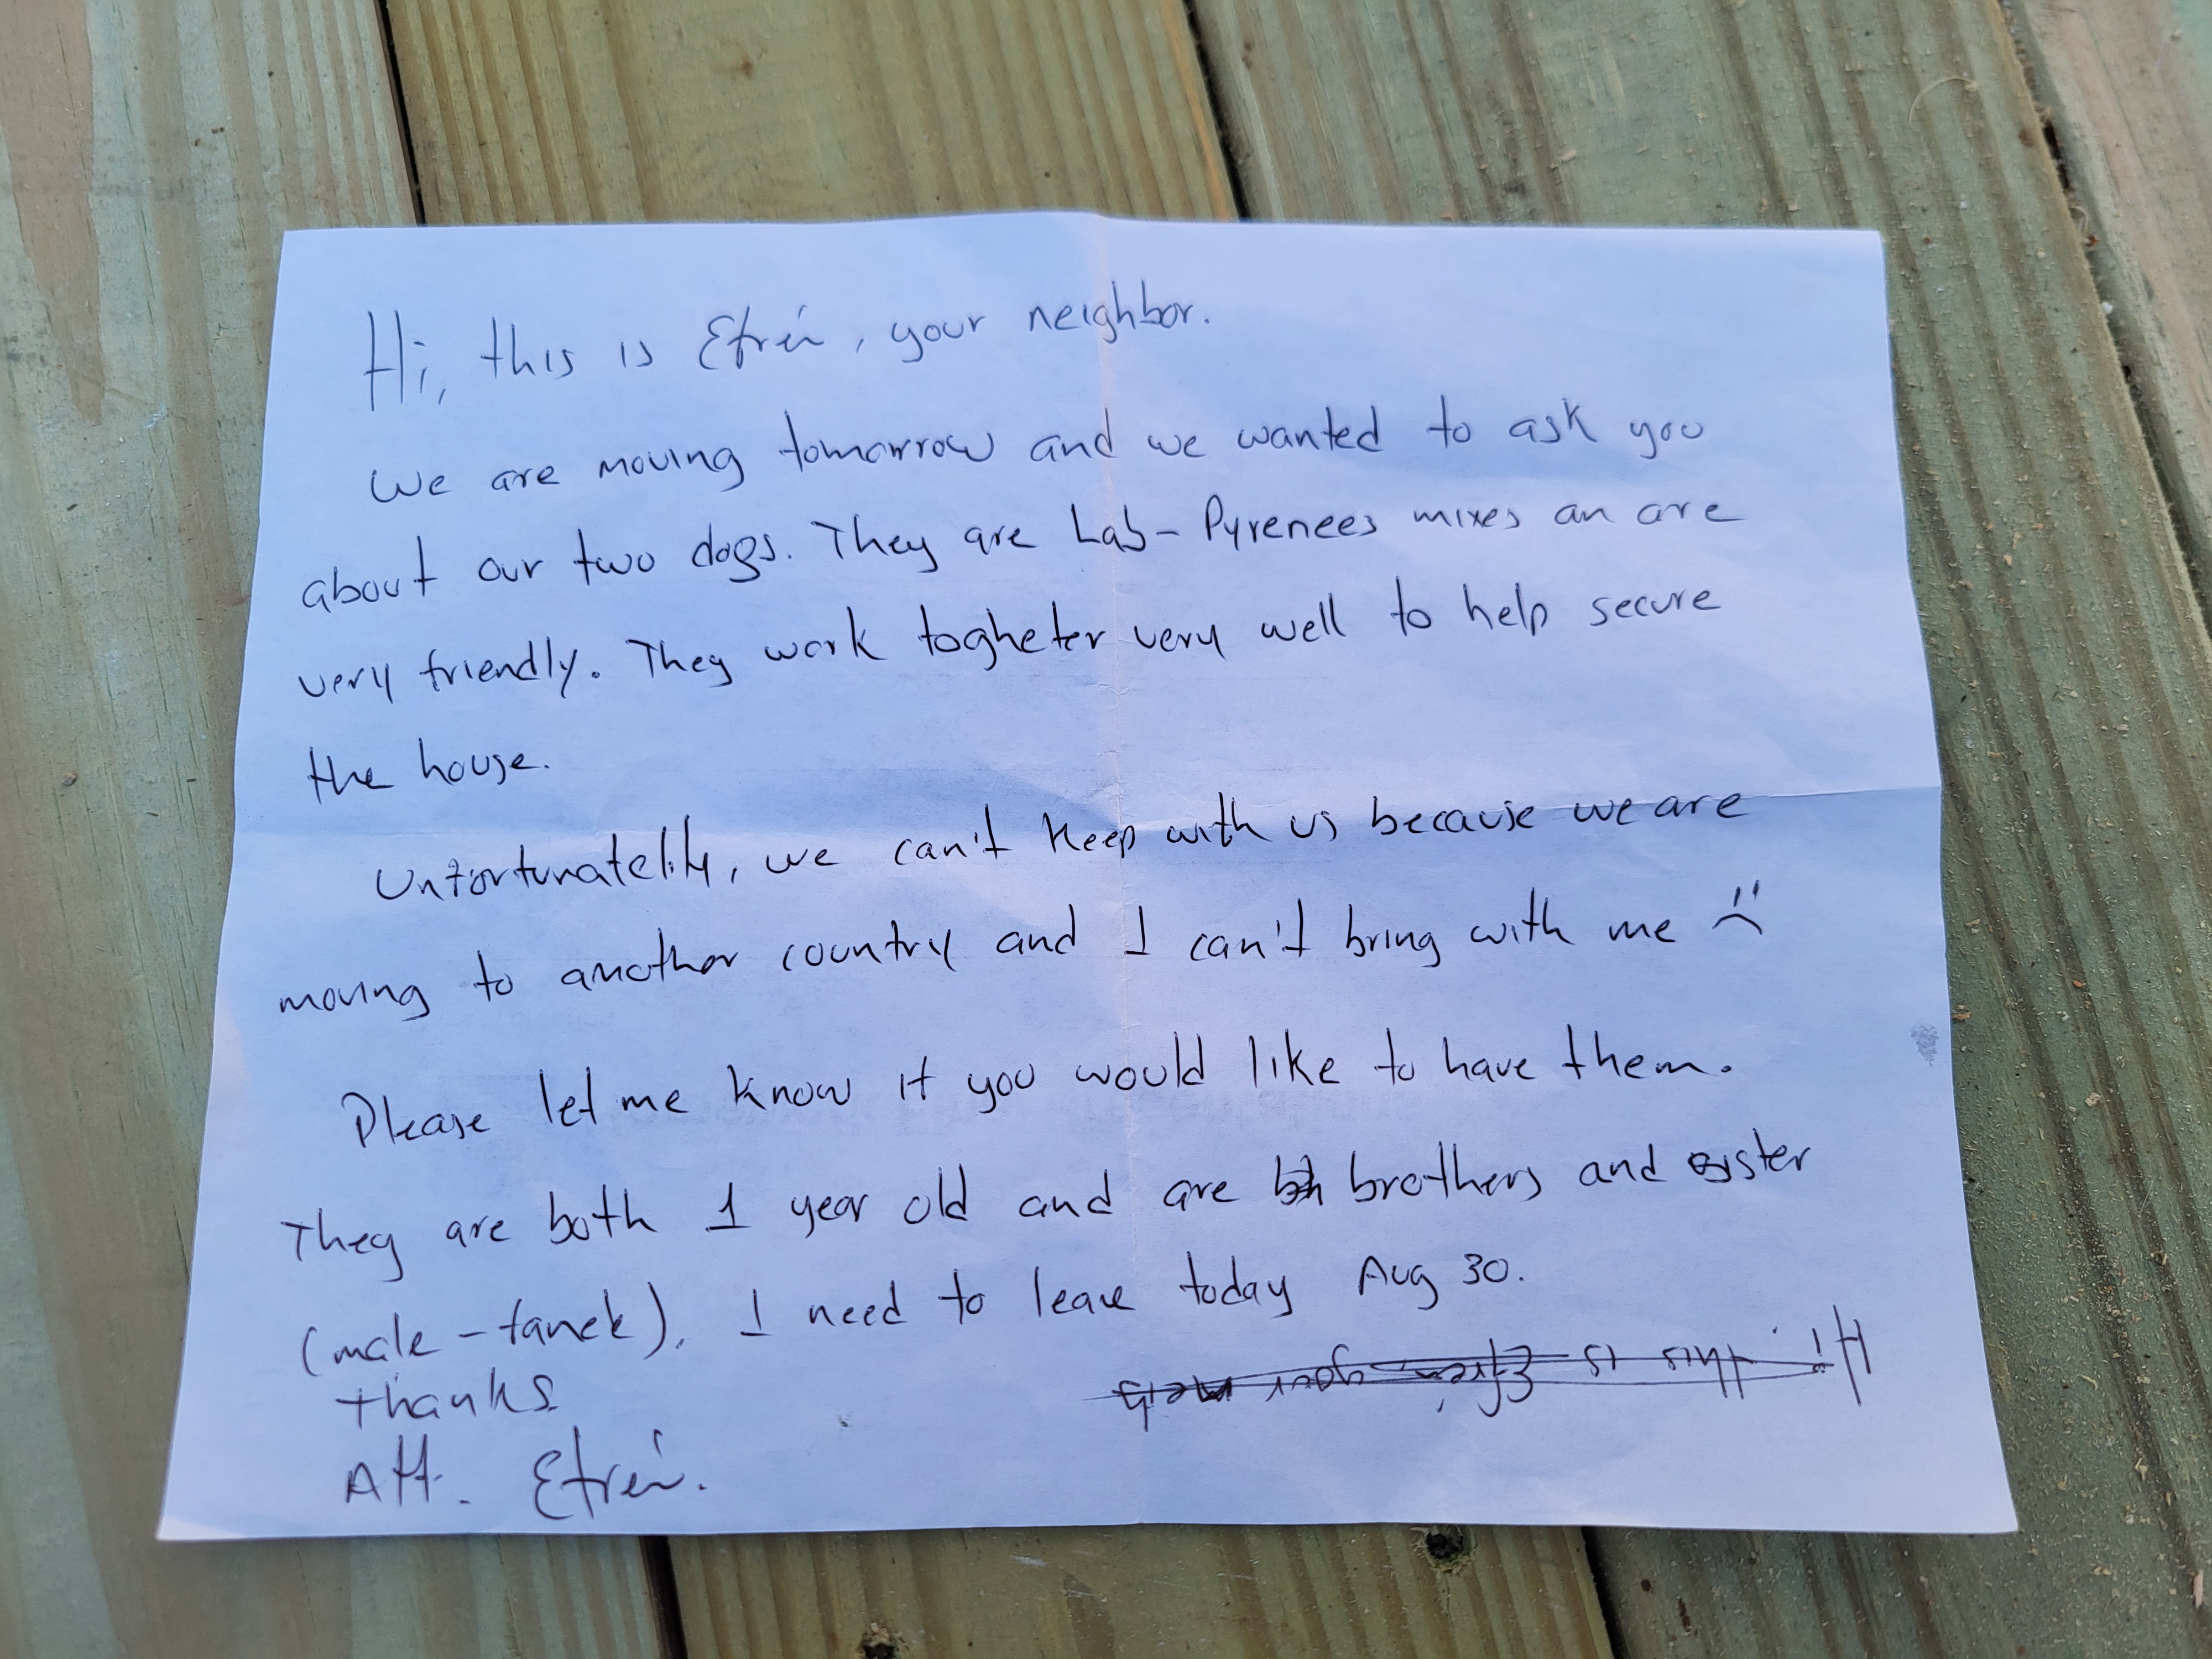 Hi, this is Efrén, your neighbor.
We are moving tomorrow and we wanted to ask you
about our two dogs. They are Lab-Pyrenees mixes an are
very friendly. They work togheter very well to help secure
the house.
Unfortunatelity, we can't keep with us because we are
moving to another country and I can't bring with me :(
Please let me know if you would like to have them.
They are both 1 year old and are brothers and sister
(male - famek). I need to leave today Aug 30.
Thanks
Att. Efrén.
Hi, this is Efrén, your neib